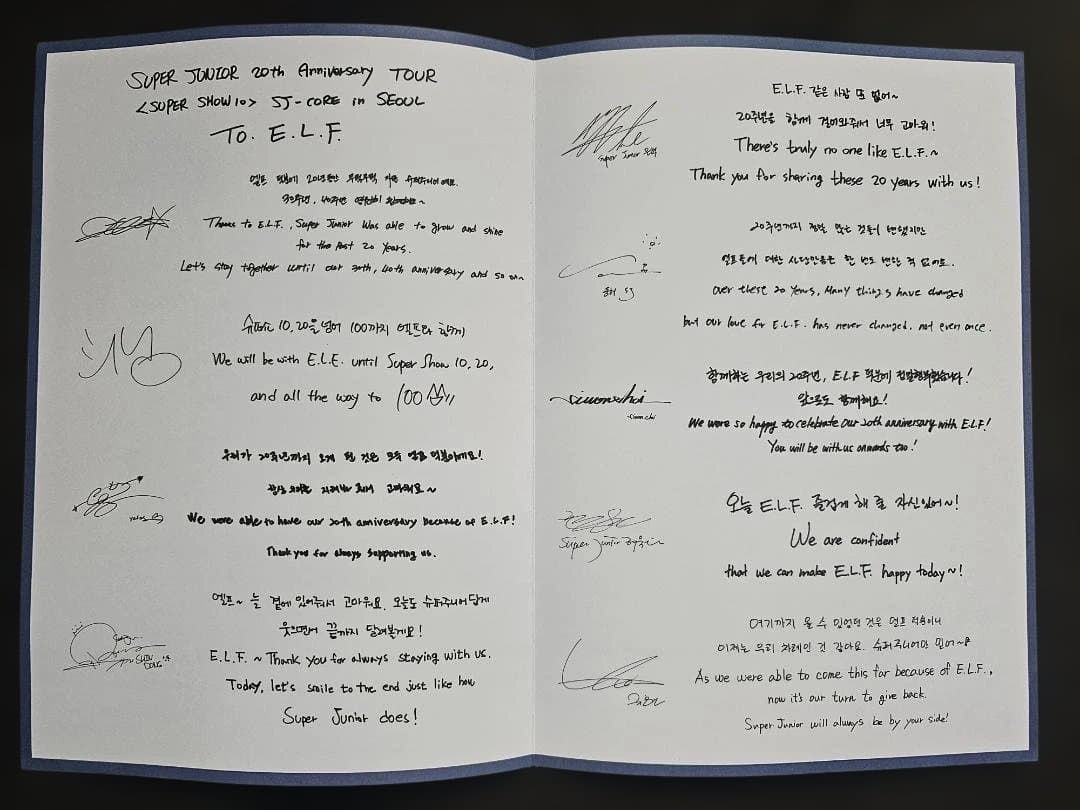 SUPER JUNIOR 20th Anniversary TOUR
<SUPER SHOW 10> SJ-CORE in SEOUL
To. E.L.F.
엘프 덕분에 20년동안 무럭무럭 자란 슈퍼주니어예요.
30주년, 40주년 연집히
Thanks to E.L.F., Super Junior was able to grow and shine
for the past 20 years.
Let's stay together until our 30th, 40th anniversary and so on~
슈퍼쇼 10, 20을 넘어 100까지 엘프와 함께
We will be with E.L.F. until Super Show 10, 20,
and all the way to 100
우리가 20주년까지 오게 된 것은 모두 엘프 덕분이에요!
항상 우리를 지켜봐 줘서 고마워요~
We were able to have our 20th anniversary because of E.L.F!
Thank you for always supporting us.
엘프~ 늘 곁에 있어줘서 고마워요. 오늘도 슈퍼주니어답게
웃으면서 끝까지 달려볼게요!
SHIN DONG
E.L.F. ~ Thank you for always staying with us.
Today, let's smile to the end just like how
Super Junior does!
E.L.F. 같은 사람 또 없어~
20주년을 함께 걸어와줘서 너무 고마워!
Super Junior 은혁
There's truly no one like E.L.F.~
Thank you for sharing these 20 years with us!
20주년까지 정말 많은 것들이 변했지만
엘프들에 대한 사랑만큼은 한 번도 변한 적 없어요.
동해 SJ
Over these 20 years, many things have changed
but our love for E.L.F. has never changed, not even once.
함께하는 우리의 20주년, E.L.F 덕분에 정말행복했습니다!
앞으로도 함께해요!
siwonchoi
We were so happy to celebrate our 20th anniversary with E.L.F!
You will be with us onwards too!
오늘 E.L.F. 즐겁게 해 줄 자신있어~!
Super Junior 려욱
We are confident
that we can make E.L.F. happy today~!
여기까지 올 수 있었던 것은 엘프 덕분이니
이제는 우리 차례인 것 같아요. 슈퍼주니어만 믿어~
규현
As we were able to come this far because of E.L.F.,
now it's our turn to give back.
Super Junior will always be by your side!